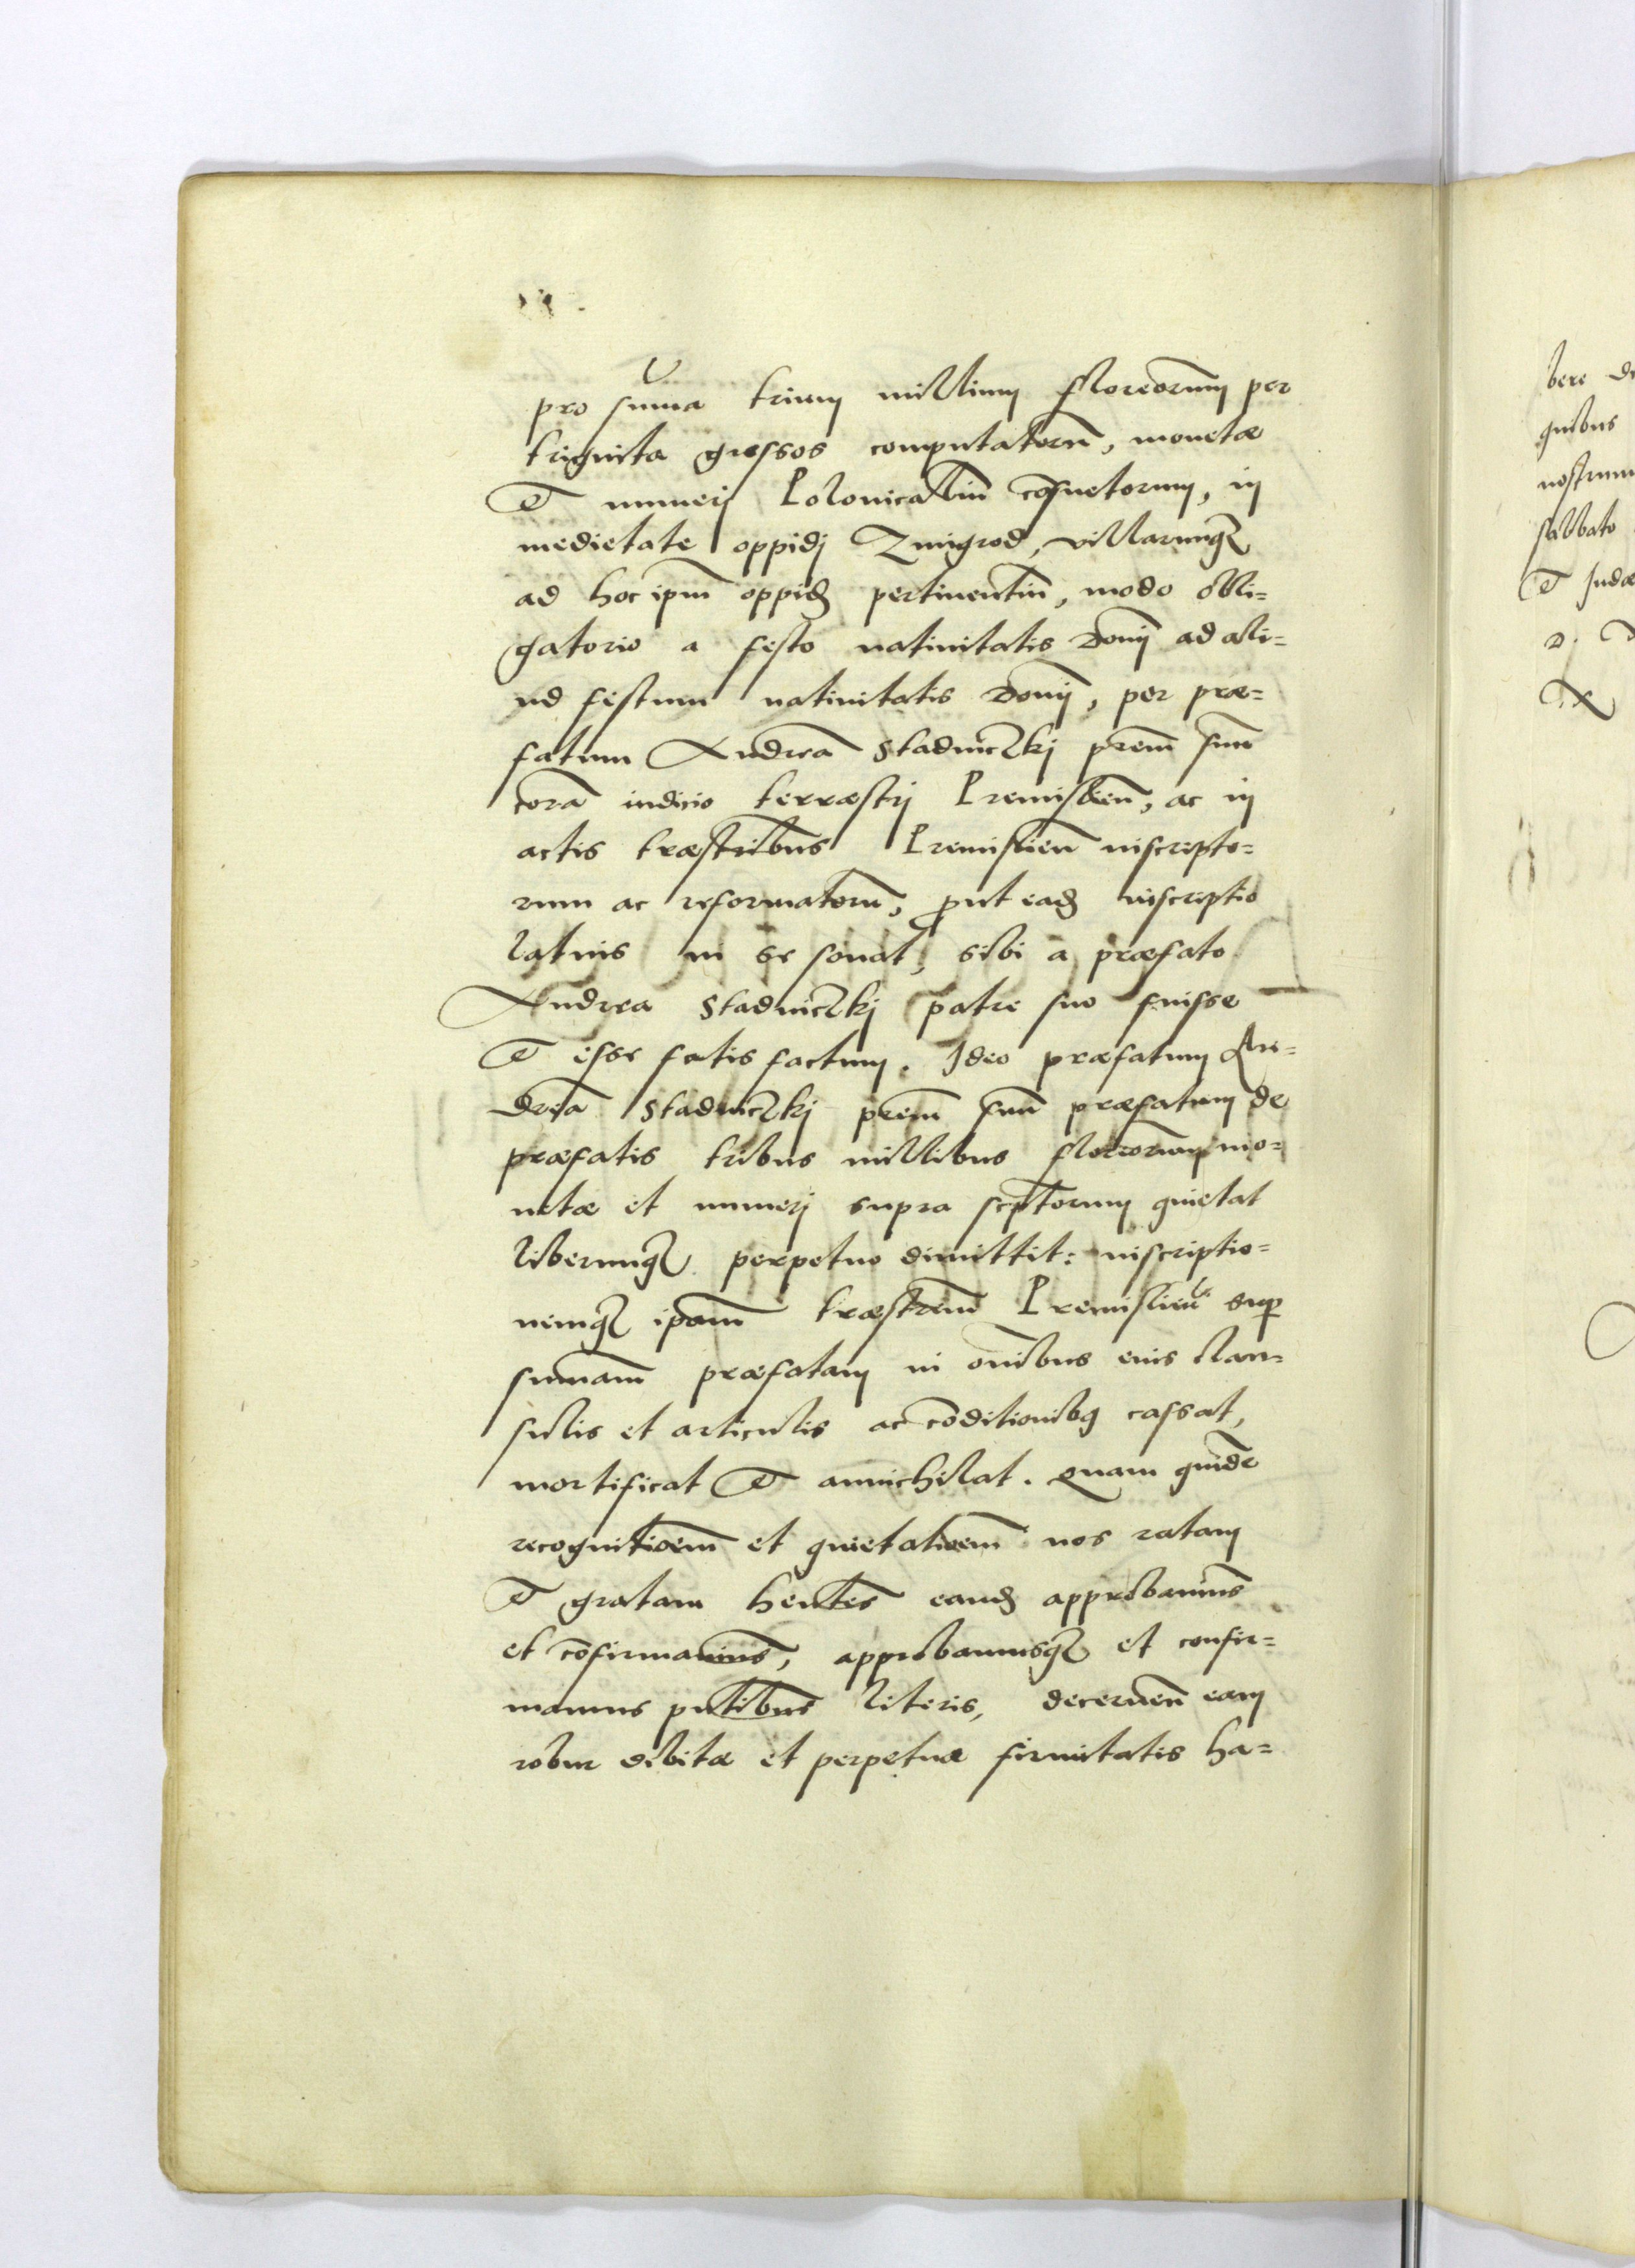 pro suma trium millium florenorum per
triginta grossos computatorū, monetæ
et numeri Polonicaliū cōsuetorum, in
medietate oppidj Zmigrod, villarumq3
ad hoc ipm̄ oppid3 pertinentiū, modo obli=
gatorio a festo natiuitatis Domī ad ali=
ud festum natiuitatis Domī, per præ=
fatum Andreā Stadniczkj prem̄ suū
corā iudicio terræstrj Premislien̄, ac in
actis træstribus Premislien̄ inscripto=
rum ac reformatorū, prout ead3 inscriptio
latius in se sonat, sibi a præfato
Andrea Stadniczkj patre suo fuisse
et esse satis factum. Ideo præfatum An=
dreā Stadniczkj prem̄ suū præfatum de
præfatis tribus millibus florenorum mo=
netæ et numerj supra scptorum quietat
liberumq3 perpetuo dimittit: inscriptio=
nemq3 ipam̄ træstrem̄ Premislien̄ sup
summam̄ præfatam in om̄ibus eius clau=
sulis et articulis ac cōditionibq cassat,
mortificat et annichilat. Quam quidē
recognitioem̄ et quietatioem̄ nos ratam
et gratam hentes eand3 approbauimus
et cōfirmauimus, approbamusq3 et confir=
mamus pntibus literis, decernen̄ eam
robur debitæ et perpetuæ firmitatis ha=
bere
quibus
nostrum
sabbato
et Judæ